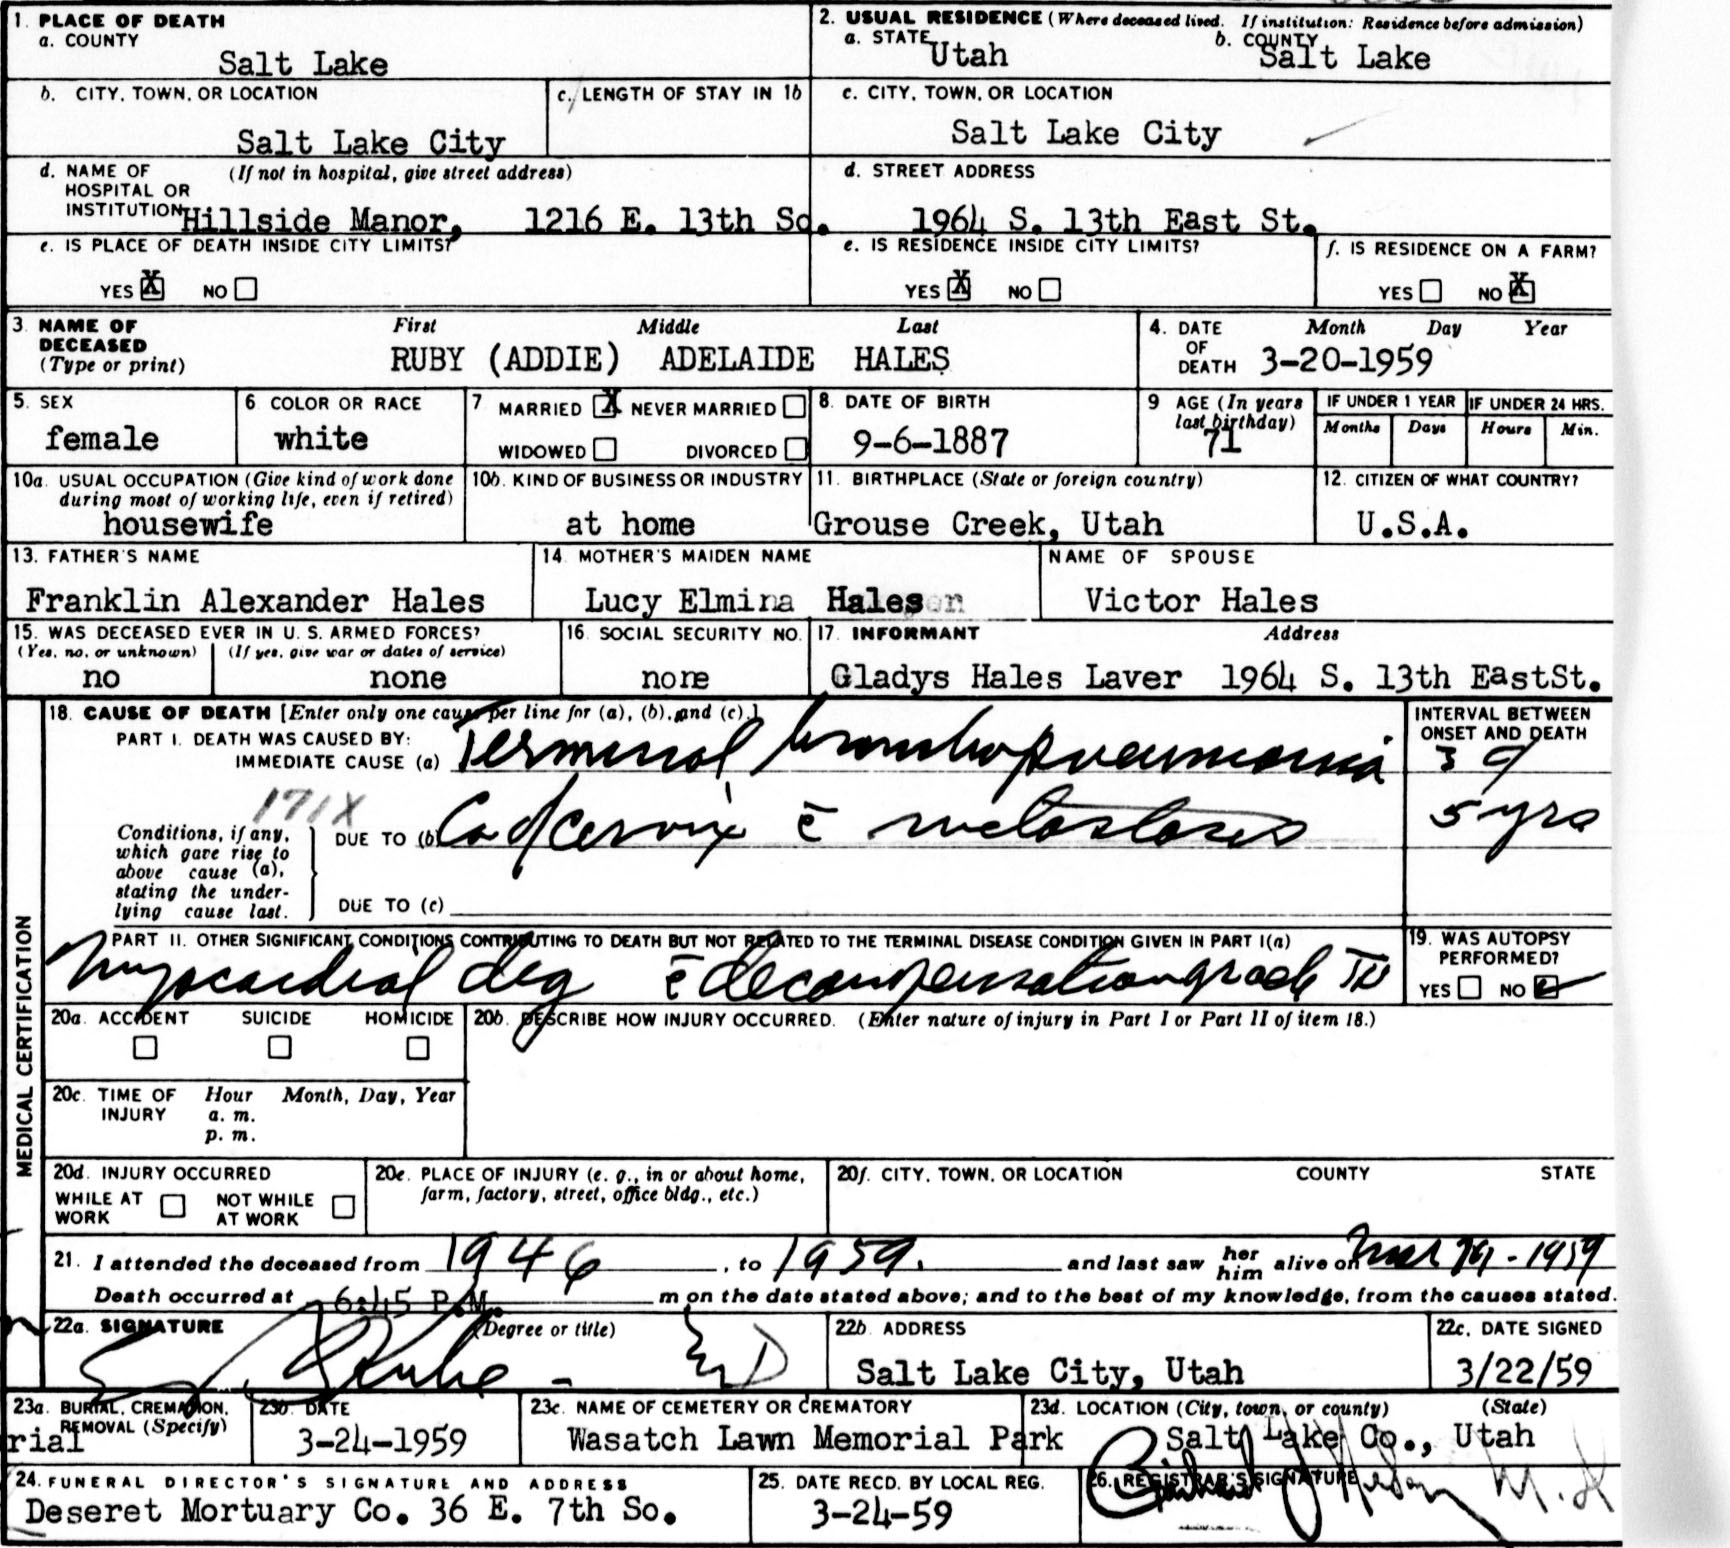 1. PLACE OF DEATH
a. COUNTY
Salt Lake
2. USUAL RESIDENCE (Where deceased lived. If institution: Residence before admission)
a. STATE Utah b. COUNTY Salt Lake
b. CITY, TOWN, OR LOCATION
Salt Lake City
c. LENGTH OF STAY IN 1b
c. CITY, TOWN, OR LOCATION
Salt Lake City
d. NAME OF HOSPITAL OR INSTITUTION (If not in hospital, give street address)
Hillside Manor, 1216 E. 13th So.
d. STREET ADDRESS
1964 S. 13th East St.
e. IS PLACE OF DEATH INSIDE CITY LIMITS?
YES X NO
e. IS RESIDENCE INSIDE CITY LIMITS?
YES X NO
f. IS RESIDENCE ON A FARM?
YES NO X
3. NAME OF DECEASED (Type or print)
First Middle Last
RUBY (ADDIE) ADELAIDE HALES
4. DATE OF DEATH Month Day Year
3-20-1959
5. SEX
female
6. COLOR OR RACE
white
7. MARRIED X NEVER MARRIED
WIDOWED DIVORCED
8. DATE OF BIRTH
9-6-1887
9. AGE (In years last birthday)
71
IF UNDER 1 YEAR
Months Days
IF UNDER 24 HRS.
Hours Min.
10a. USUAL OCCUPATION (Give kind of work done during most of working life, even if retired)
housewife
10b. KIND OF BUSINESS OR INDUSTRY
at home
11. BIRTHPLACE (State or foreign country)
Grouse Creek, Utah
12. CITIZEN OF WHAT COUNTRY?
U.S.A.
13. FATHER'S NAME
Franklin Alexander Hales
14. MOTHER'S MAIDEN NAME
Lucy Elmina Hales
NAME OF SPOUSE
Victor Hales
15. WAS DECEASED EVER IN U. S. ARMED FORCES?
(Yes, no, or unknown) (If yes, give war or dates of service)
no none
16. SOCIAL SECURITY NO.
none
17. INFORMANT Address
Gladys Hales Laver 1964 S. 13th East St.
MEDICAL CERTIFICATION
18. CAUSE OF DEATH [Enter only one cause per line for (a), (b), and (c).]
PART I. DEATH WAS CAUSED BY:
IMMEDIATE CAUSE (a) Terminal bronchopneumonia
INTERVAL BETWEEN ONSET AND DEATH
3 d
171X
Conditions, if any, which gave rise to above cause (a), stating the underlying cause last.
DUE TO (b) Ca of Cervix c̄ metastases
5 yrs
DUE TO (c)
PART II. OTHER SIGNIFICANT CONDITIONS CONTRIBUTING TO DEATH BUT NOT RELATED TO THE TERMINAL DISEASE CONDITION GIVEN IN PART I(a)
Myocardial deg c̄ decompensation grade IV
19. WAS AUTOPSY PERFORMED?
YES NO
20a. ACCIDENT SUICIDE HOMICIDE
20b. DESCRIBE HOW INJURY OCCURRED. (Enter nature of injury in Part I or Part II of item 18.)
20c. TIME OF INJURY Hour Month, Day, Year
a. m.
p. m.
20d. INJURY OCCURRED
WHILE AT WORK NOT WHILE AT WORK
20e. PLACE OF INJURY (e. g., in or about home, farm, factory, street, office bldg., etc.)
20f. CITY, TOWN, OR LOCATION COUNTY STATE
21. I attended the deceased from 1946, to 1959. and last saw her him alive on Mar 19 - 1959
Death occurred at 6:45 P.M. m on the date stated above; and to the best of my knowledge, from the causes stated.
22a. SIGNATURE (Degree or title)
MD
22b. ADDRESS
Salt Lake City, Utah
22c. DATE SIGNED
3/22/59
23a. BURIAL, CREMATION, REMOVAL (Specify)
rial
23b. DATE
3-24-1959
23c. NAME OF CEMETERY OR CREMATORY
Wasatch Lawn Memorial Park
23d. LOCATION (City, town, or county) (State)
Salt Lake Co., Utah
24. FUNERAL DIRECTOR'S SIGNATURE AND ADDRESS
Deseret Mortuary Co. 36 E. 7th So.
25. DATE RECD. BY LOCAL REG.
3-24-59
26. REGISTRAR'S SIGNATURE